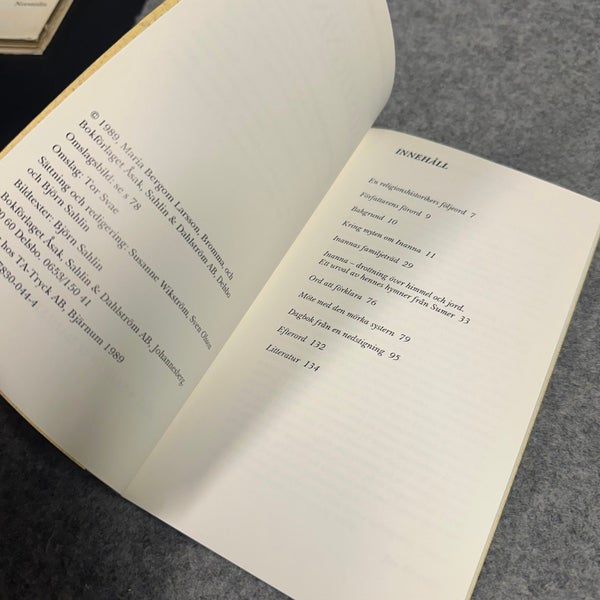 © 1989, Maria Bergom Larsson, Bromma och
Bokförlaget Åsak, Sahlin & Dahlström AB, Delsbo
Omslagsbild, se s 78
Omslag: Tor Svae
Sättning och redigering: Susanne Wikström, Sven Olsson
och Björn Sahlin
Bildtexter: Björn Sahlin
Bokförlaget Åsak, Sahlin & Dahlström AB, Johannesberg
20 60 Delsbo. 0653/150 41
hos TA-Tryck AB, Bjärnum 1989
7830-014-4
INNEHÅLL
En religionshistorikers följeord 7
Författarens förord 9
Bakgrund 10
Kring myten om Inanna 11
Inannas familjeträd 29
Inanna – drottning över himmel och jord.
Ett urval av hennes hymner från Sumer 33
Ord att förklara 76
Möte med den mörka systern 79
Dagbok från en nedstigning 95
Efterord 132
Litteratur 134